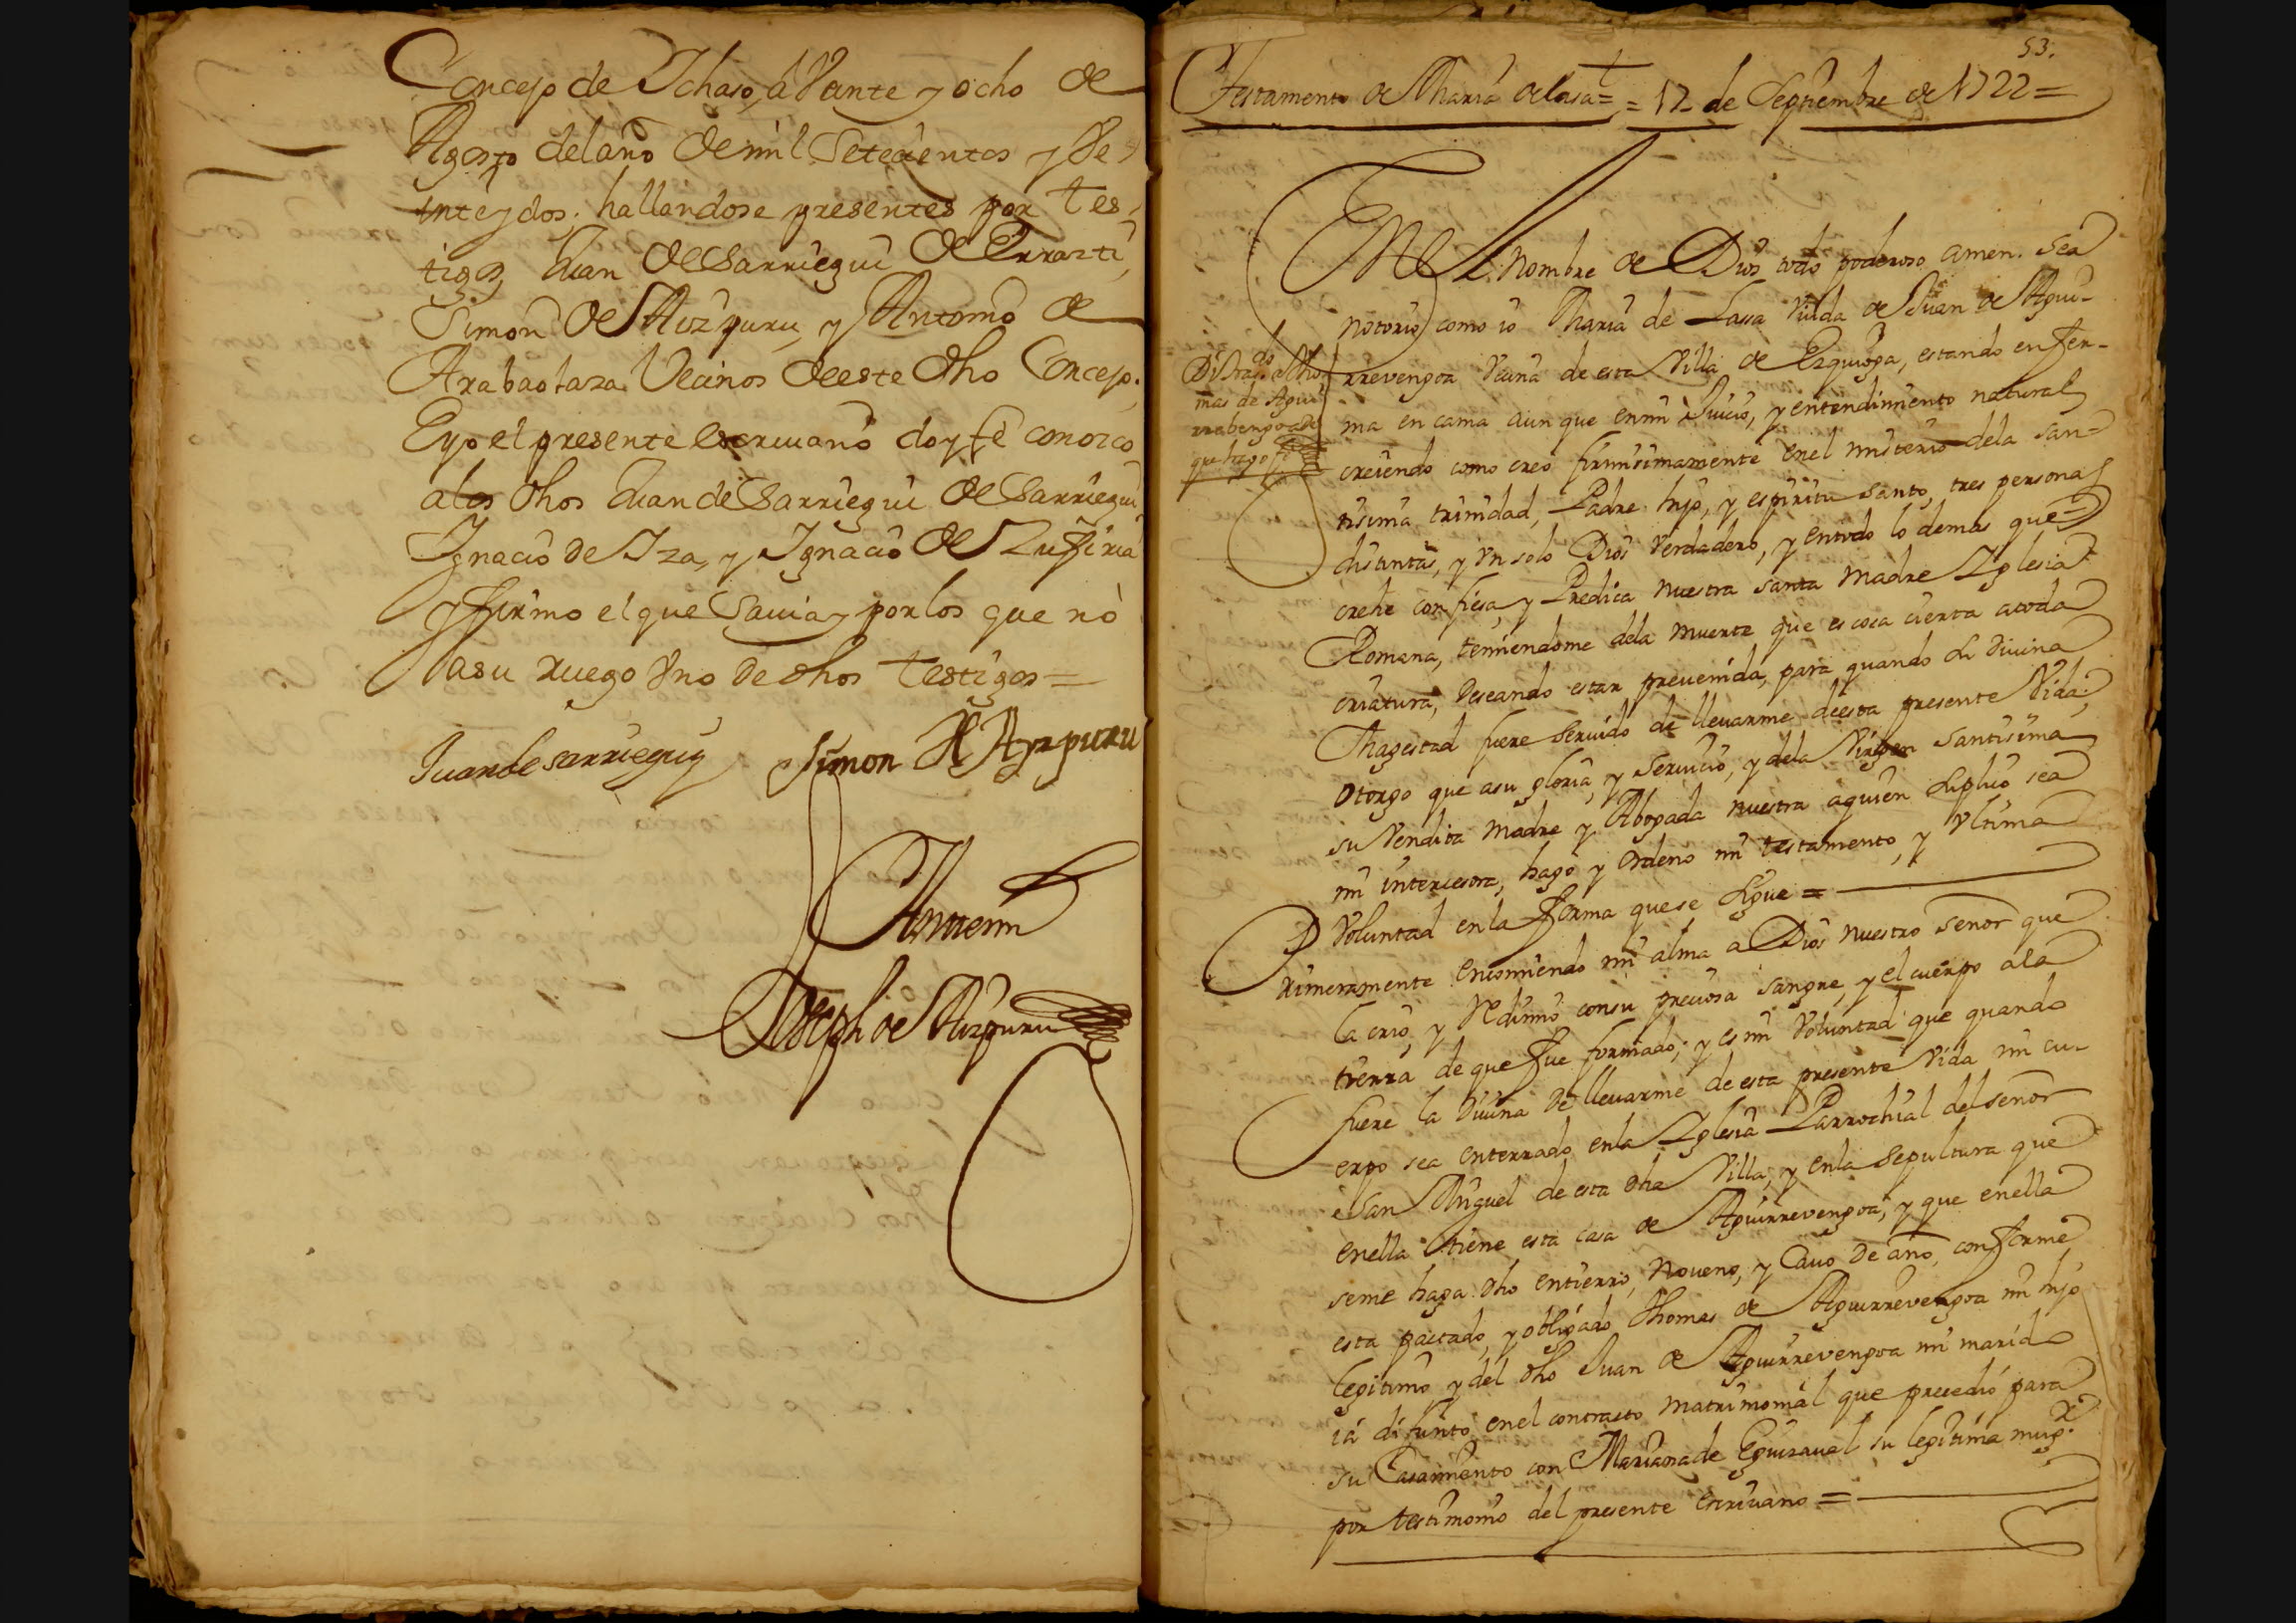 Concejo de Ichaso, a Vente y ocho de
Agosto del año de mil Setecientos y Ve
inte y dos. hallandose presentes por tes,
tigos, Juan de Sarriegui de Errazti,
Simon de Aizpuru, y Antonio de
Arabaolaza Vecinos de este dho Concejo.
Eyo el presente escriuano doy fè conozco
alos dhos Juan de Sarriegui de Sarriegui
Ignacio de Iza, y Ignacio de Zufiria
y firmo el que Sauia y por los que nò
asu ruego Vno de dhos testigos =
Juan de sarriegui Simon de Ayzpuru
Antemi
Joseph de Aizpuru
53.
Testamento de Maria de lasa = = 17 de Septiembre de 1722 =
En el Nombre de Dios todo poderoso amen. sea
notorio como io Maria de Lassa Viuda de Juan de Agui-
rrevengoa Vecina de esta Villa de Ezquioga, estando enfer-
ma en cama aun que en mi Juicio, y entendimiento natural
creiendo como creo firmisimamente en el misterio dela san-
tisima trinidad, Padre hijo, y espiritu santo, tres personas
distintas, y Vn solo Dios Verdadero, y entodo lo demas que
crehe confiesa, y Predica nuestra santa Madre Iglesia
Romana, temiendome dela muerte que es cosa cierta atoda
criatura, Deseando estar preuenida, para quando la Diuina
Magestad fuere seruido de lleuarme deesta presente Vida;
Otorgo que asu gloria, y Seruicio, y dela Virgen Santisima
su Vendita Madre y Abogada nuestra aquien suplico sea
mi intercesora, hago y Ordeno mi testamento, y Vltima
Voluntad en la forma que se sigue =
Primeramente Encomiendo mi alma a Dios nuestro señor que
la crio, y Redimio consu preciosa sangre, y el cuerpo ala
tierra de que fue formado; y es mi Voluntad que quando
fuere la Diuina de lleuarme de esta presente Vida mi cu-
erpo sea enterrado en la Iglesia Parrochial del señor
San Miguel de esta dha Villa, y en la sepultura que
en ella tiene esta casa de Aguirrevengoa; y que en ella
seme haga dho entierro, Noueno, y Cauo de año, conforme
esta pactado, y obligado Thomas de Aguirrevengoa mi hijo
legitimo y del dho Juan de Aguirrevengoa mi marido
ia difunto en el contrato matrimonial que precedió para
su Casamiento con Mariana de Eguzaual su legitima mugr.
por testimonio del presente escriuano =
mas de Agui
rrabengoa de
que hago fe